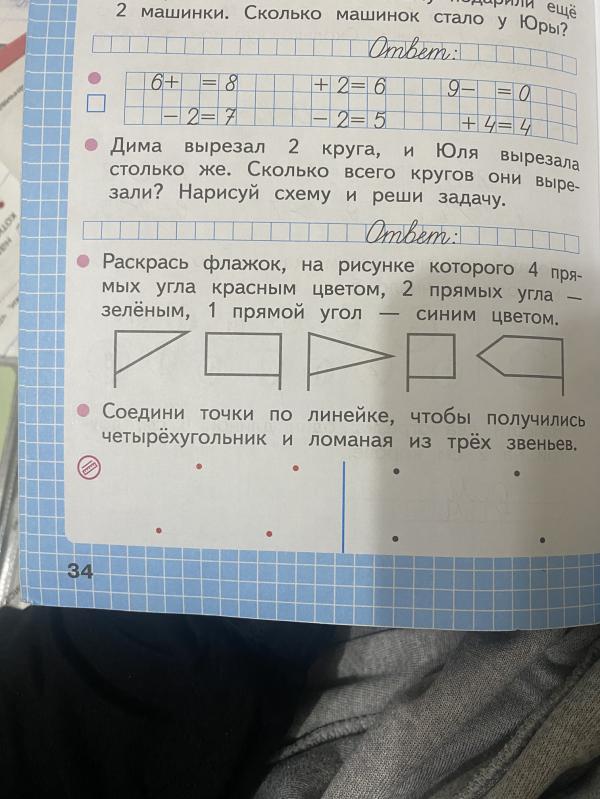 подарили ещё
2 машинки. Сколько машинок стало у Юры?
Ответ:
6+ = 8 + 2= 6 9– = 0
– 2= 7 – 2= 5 + 4= 4
Дима вырезал 2 круга, и Юля вырезала
столько же. Сколько всего кругов они выре-
зали? Нарисуй схему и реши задачу.
Ответ:
Раскрась флажок, на рисунке которого 4 пря-
мых угла красным цветом, 2 прямых угла —
зелёным, 1 прямой угол — синим цветом.
Соедини точки по линейке, чтобы получились
четырёхугольник и ломаная из трёх звеньев.
34